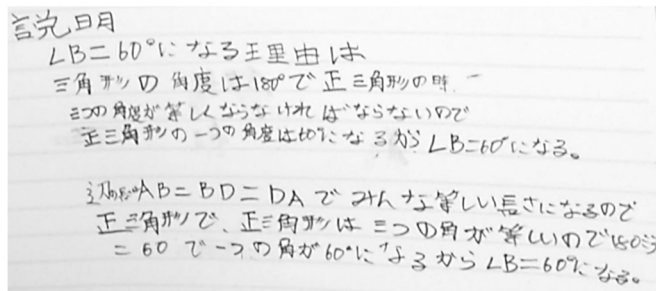 説明
∠B=60°になる理由は
三角形の角度は180°で正三角形の時
三つの角度が等しくならなければならないので
正三角形の一つの角度は60°になるから∠B=60°になる。
AB=BD=DAでみんな等しい長さになるので
正三角形で、正三角形は三つの角が等しいので180÷3
=60で一つの角が60°になるから∠B=60°になる。